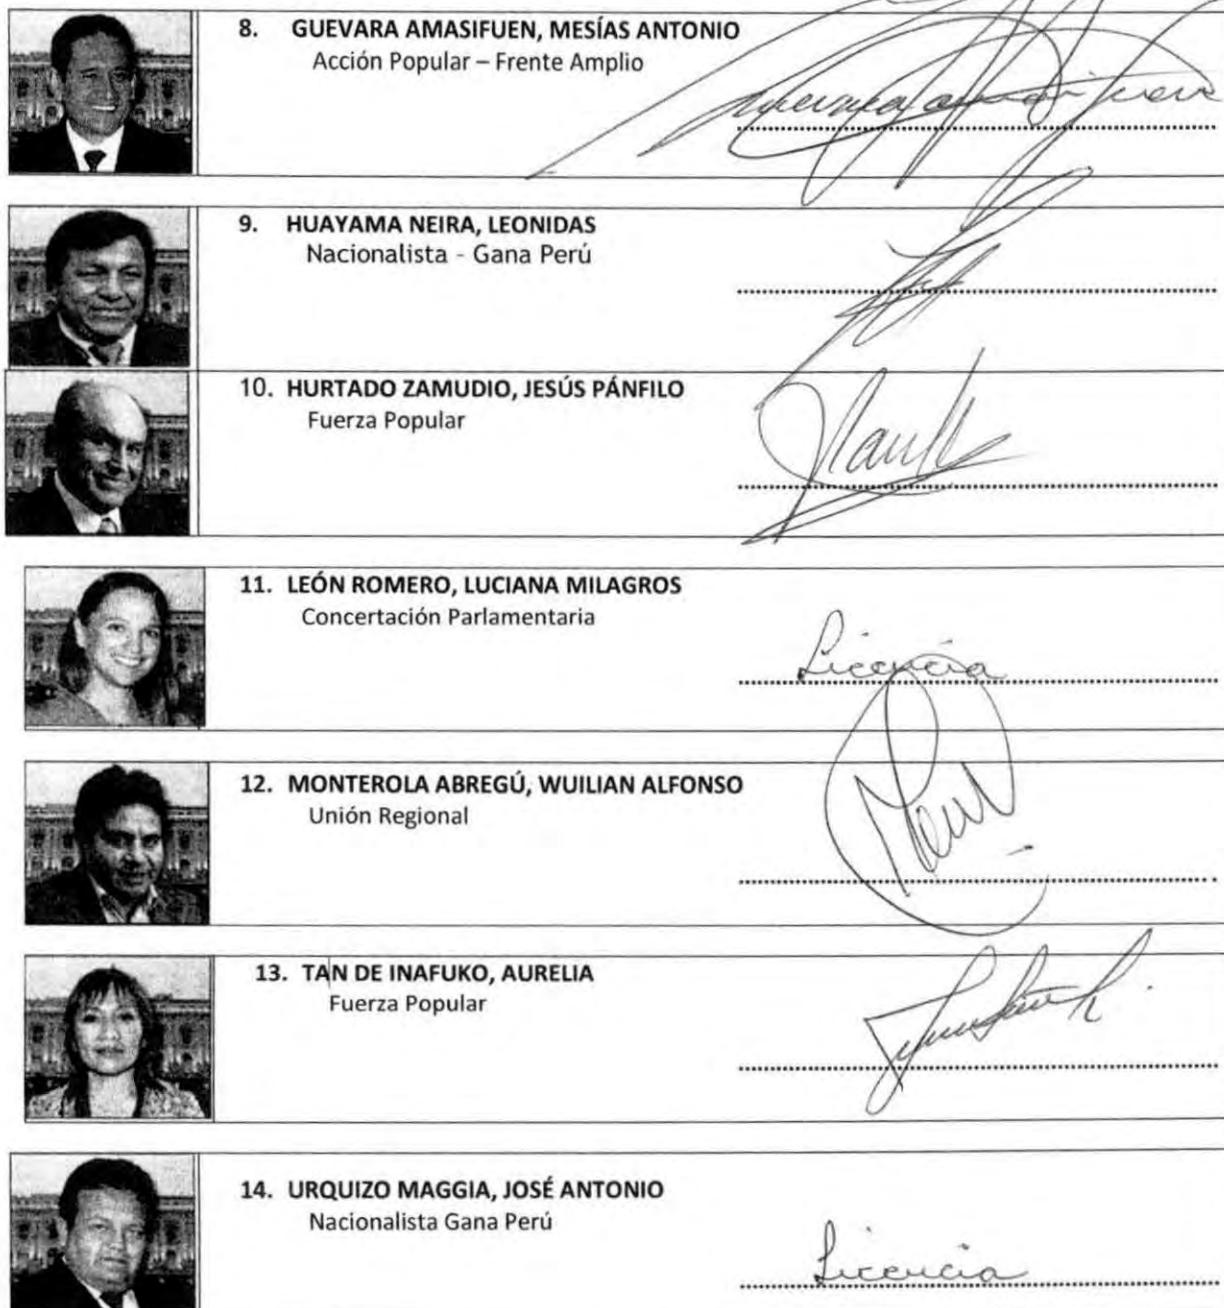 8. GUEVARA AMASIFUEN, MESÍAS ANTONIO
Acción Popular – Frente Amplio
9. HUAYAMA NEIRA, LEONIDAS
Nacionalista - Gana Perú
10. HURTADO ZAMUDIO, JESÚS PÁNFILO
Fuerza Popular
11. LEÓN ROMERO, LUCIANA MILAGROS
Concertación Parlamentaria
Licencia
12. MONTEROLA ABREGÚ, WUILIAN ALFONSO
Unión Regional
13. TAN DE INAFUKO, AURELIA
Fuerza Popular
14. URQUIZO MAGGIA, JOSÉ ANTONIO
Nacionalista Gana Perú
Licencia